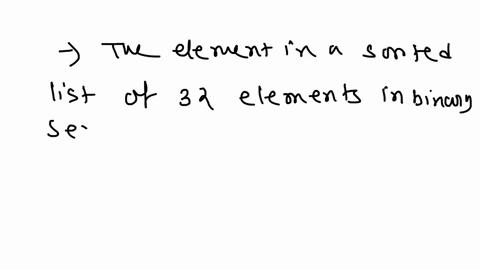 → The element in a sorted
list of 32 elements in binary
se